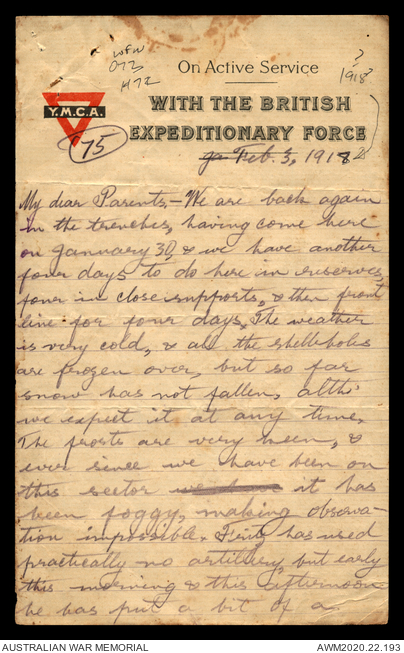 WFW
072
H72
?
1918?
On Active Service
Y.M.C.A.
WITH THE BRITISH
EXPEDITIONARY FORCE
75
Feb. 3, 1918
My dear Parents,- We are back again
in the trenches, having come here
on January 30, & we have another
four days to do here in reserves,
four in close supports, & then front
line for four days. The weather
is very cold, & all the shellholes
are frozen over, but so far
snow has not fallen, altho'
we expect it at any time.
The frosts are very keen, &
ever since we have been on
this sector we have it has
been foggy, making observa-
tion impossible. Fritz has used
practically no artillery, but early
this morning & this afternoon
he has put a bit of a
AUSTRALIAN WAR MEMORIAL
AWM2020.22.193